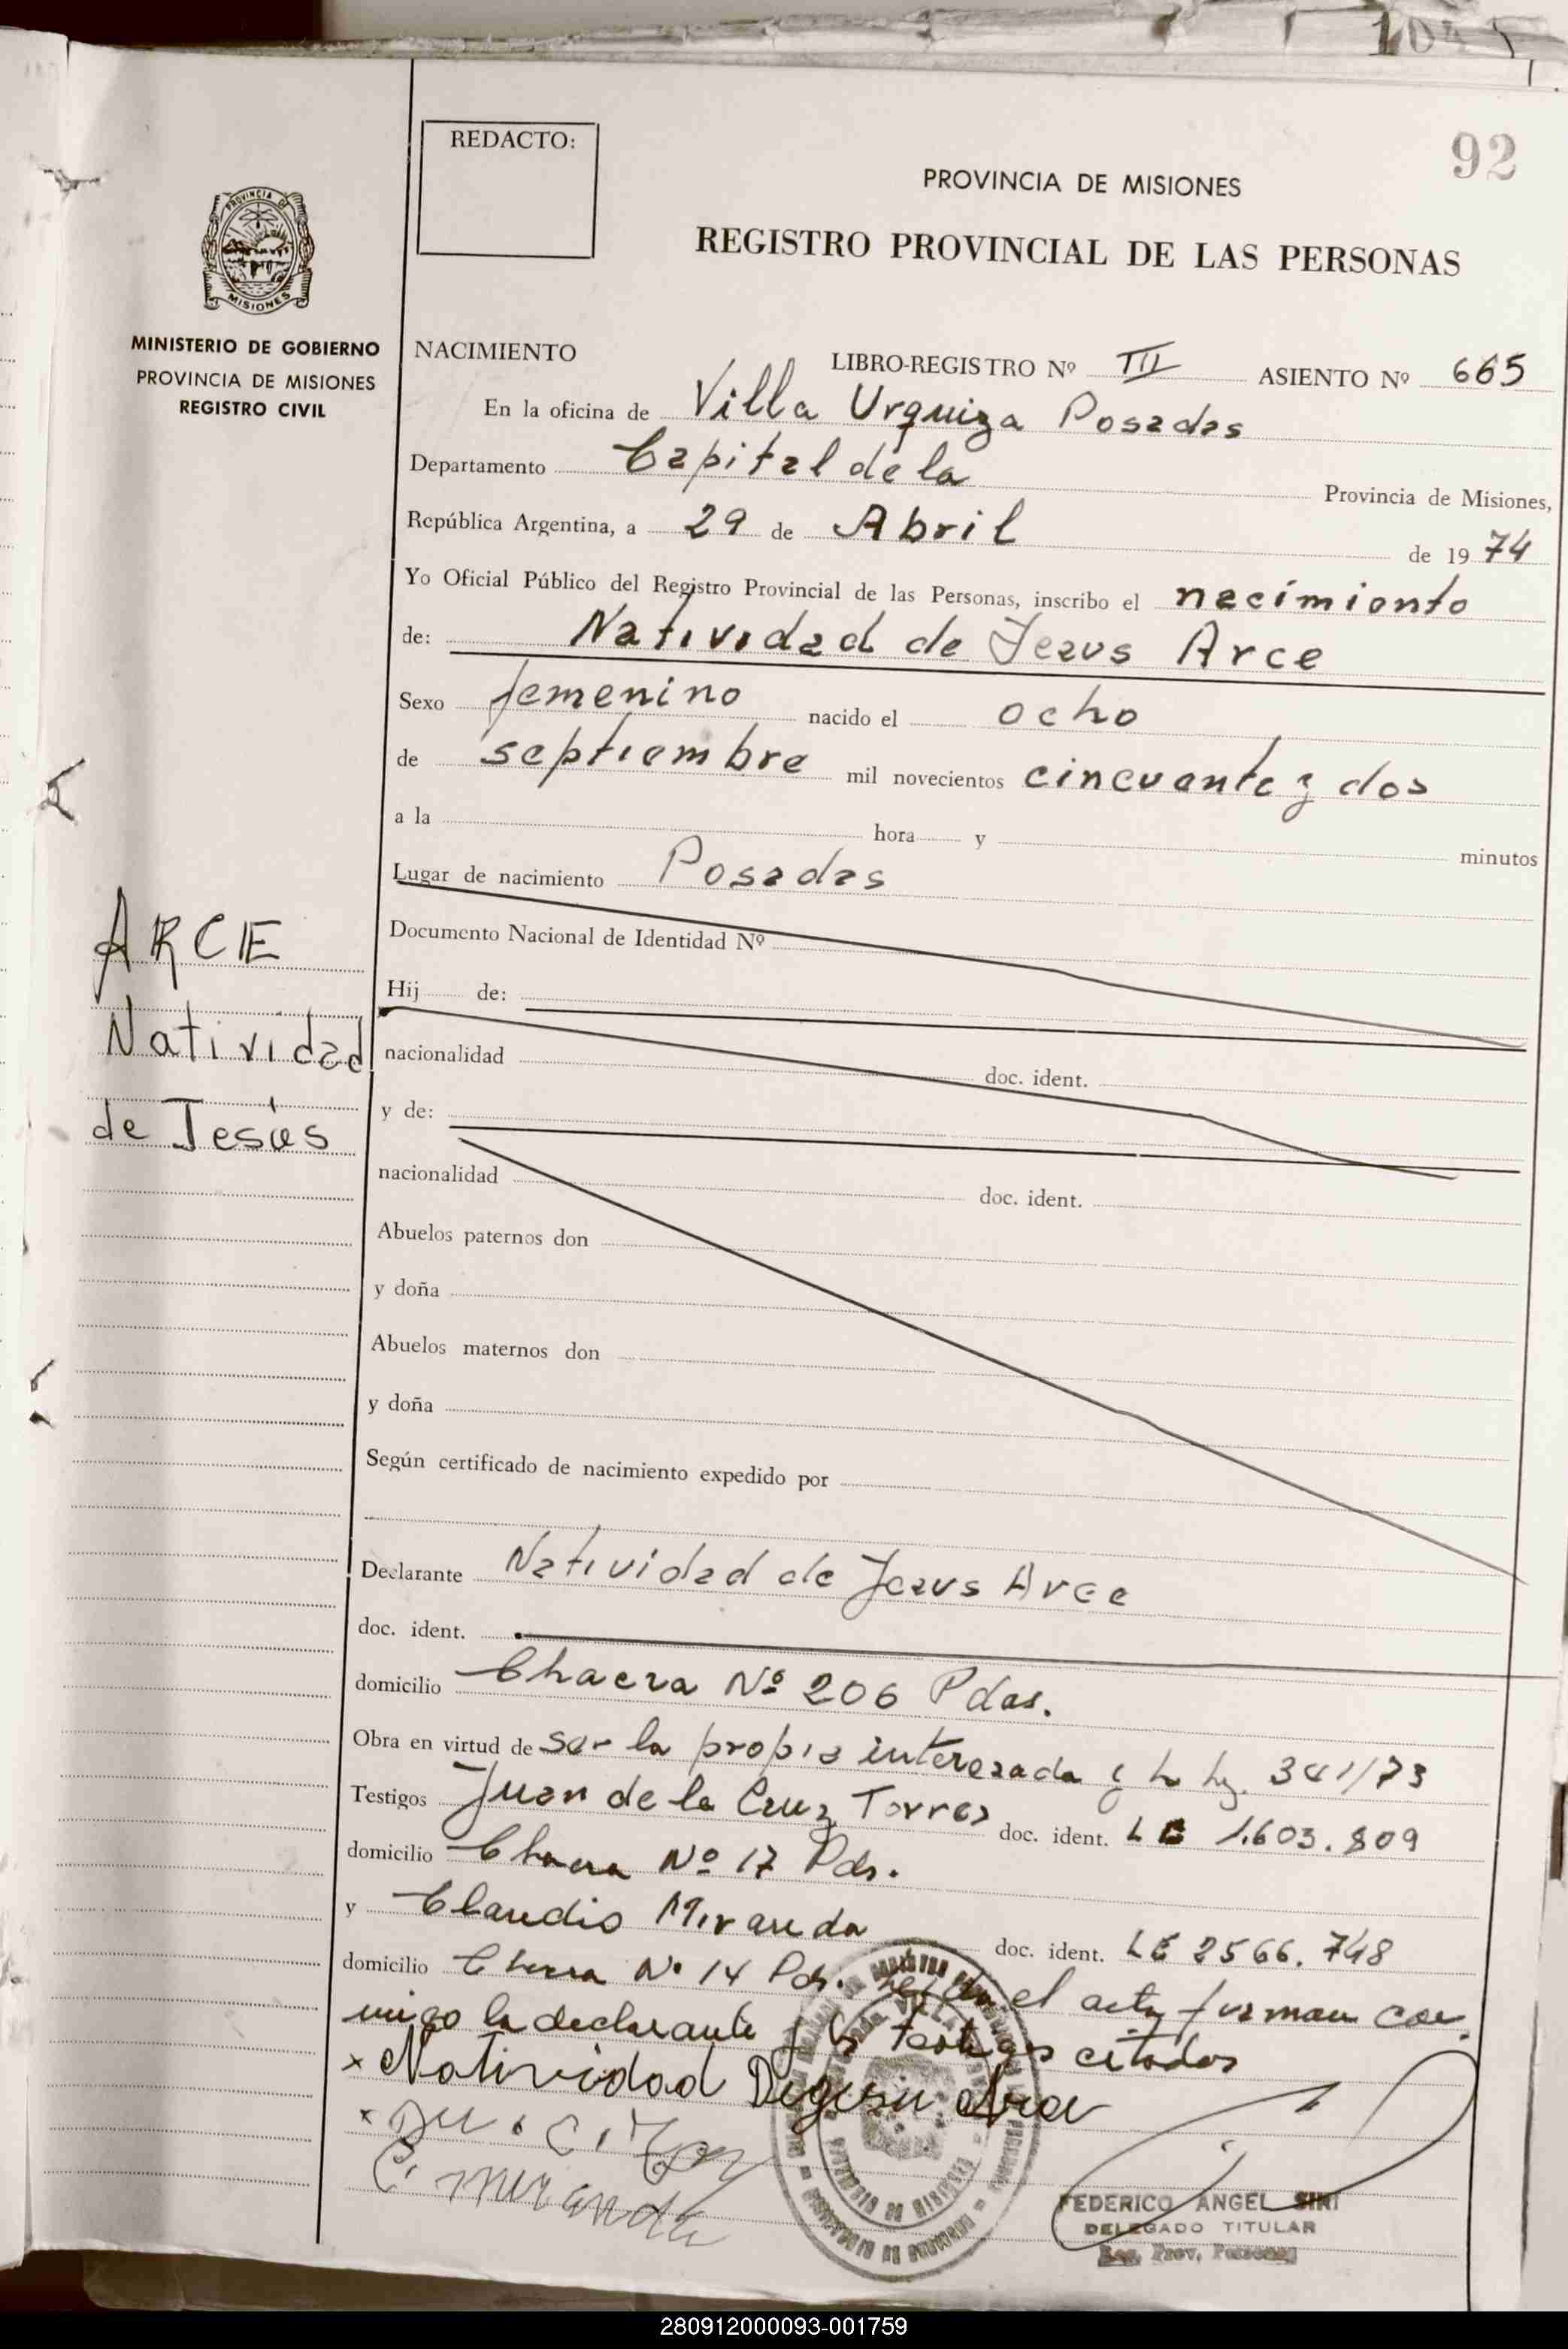 92
REDACTO:
PROVINCIA DE MISIONES
REGISTRO PROVINCIAL DE LAS PERSONAS
PROVINCIA DE
MISIONES
MINISTERIO DE GOBIERNO
PROVINCIA DE MISIONES
REGISTRO CIVIL
NACIMIENTO LIBRO-REGISTRO Nº III ASIENTO Nº 665
En la oficina de Villa Urquiza Posadas
Departamento Capital de la Provincia de Misiones,
República Argentina, a 29 de Abril de 1974
Yo Oficial Público del Registro Provincial de las Personas, inscribo el nacimiento
de: Natividad de Jezus Arce
Sexo femenino nacido el ocho
de septiembre mil novecientos cincuenta y dos
a la hora y minutos
Lugar de nacimiento Posadas
Documento Nacional de Identidad Nº
Hij de:
nacionalidad doc. ident.
y de:
nacionalidad doc. ident.
Abuelos paternos don
y doña
Abuelos maternos don
y doña
Según certificado de nacimiento expedido por
ARCE
Natividad
de Jesús
Declarante Natividad de Jezus Arce
doc. ident.
domicilio Chacra Nº 206 Pdas.
Obra en virtud de ser la propia interezada y 341/73
Testigos Juan de la Cruz Torres doc. ident. LE 1.603.809
domicilio Chacra Nº 17 Pds.
y Claudio Miranda doc. ident. LE 2566.748
domicilio Chacra Nº 14 Pds. el acta firman con
migo la declarante y los testigos citados
x Natividad Degesu Arce
C. Miranda
FEDERICO ANGEL SIRI
DELEGADO TITULAR
Reg. Prov. Personas
280912000093-001759